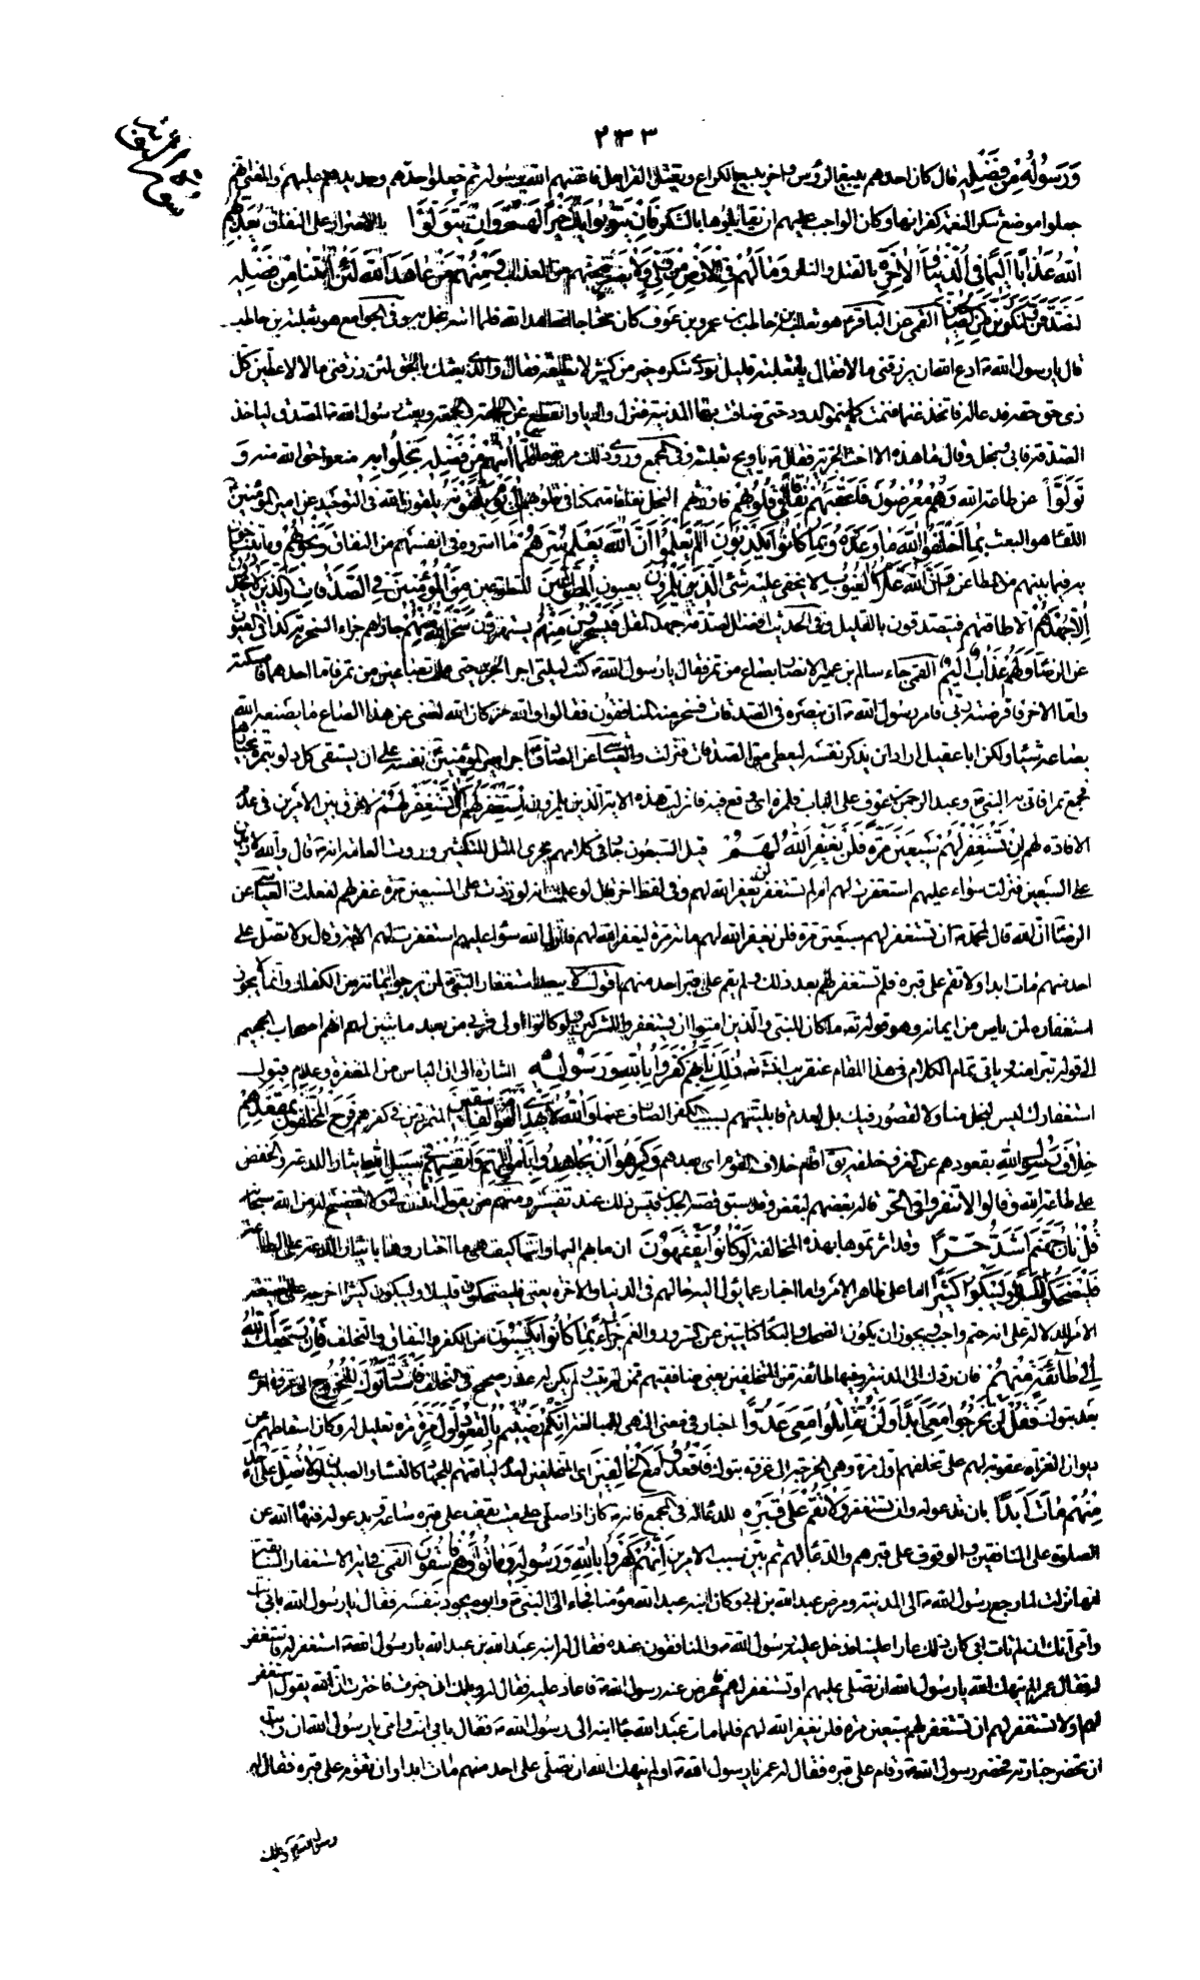 ٢٣٣
وَرَسُولُهُ مِنْ فَضْلِهِ قال كان احدهم يبيع الرؤس واخر يبيع الكراع ويفتل القرامل فاغناهم الله برسوله ثم جعلوا حدّهم وحديدهم عليهم والمعنى انهم
جعلوا موضع شكر النعمة كفرانها وكان الواجب عليهم ان يقابلوها بالشكر فَاِنْ يَتُوبُوا يَكُ خَيْرًا لَهُمْ وَاِنْ يَتَوَلَّوْا بالاصرار على النفاق يُعَذِّبْهُمُ
اللهُ عَذَابًا اَلِيمًا فِي الدُّنْيَا وَالْاٰخِرَةِ بالقتل والنار وَمَا لَهُمْ فِي الْاَرْضِ مِنْ وَلِيٍّ وَلَا نَصِيرٍ ينجيهم من العذاب وَمِنْهُمْ مَنْ عَاهَدَ اللهَ لَئِنْ اٰتٰنَا مِنْ فَضْلِهِ
لَنَصَّدَّقَنَّ وَلَنَكُونَنَّ مِنَ الصّٰلِحِينَ القمي عن الباقر هو ثعلبة بن حاطب بن عمرو بن عوف كان محتاجا فعاهد الله فلما اتاه بخل به وفي الجوامع هو ثعلبة بن حاطب
قال يا رسول الله ادع الله ان يرزقني مالا فقال يا ثعلبة قليل تؤدي شكره خير من كثير لا تطيقه فقال والذي بعثك بالحق لئن رزقني مالا لاعطين كل
ذي حق حقه فدعا له فاتخذ غنما فنمت كما ينمو الدود حتى ضاقت بها المدينة فنزل واديا وانقطع عن الجماعة والجمعة وبعث رسول الله المصدق لياخذ
الصدقة فابى وبخل وقال ما هذه الا اخت الجزية فقال يا ويح ثعلبة وفي المجمع وروى ذلك مرفوعا فَلَمَّا اٰتٰهُمْ مِنْ فَضْلِهِ بَخِلُوا بِهِ منعوا حق الله منه وَ
تَوَلَّوْا عن طاعة الله وَهُمْ مُعْرِضُونَ فَاَعْقَبَهُمْ نِفَاقًا فِي قُلُوبِهِمْ فاورثهم البخل نفاقا متمكنا في قلوبهم اِلٰى يَوْمِ يَلْقَوْنَهُ يلقون الله في التوحيد عن امير المؤمنين
اللقاء هو البعث بِمَا اَخْلَفُوا اللهَ مَا وَعَدُوهُ وَبِمَا كَانُوا يَكْذِبُونَ اَلَمْ يَعْلَمُوا اَنَّ اللهَ يَعْلَمُ سِرَّهُمْ ما اسروه في انفسهم من النفاق وَنَجْوٰهُمْ وما يتناجون
به فيما بينهم من المطاعن وَاَنَّ اللهَ عَلَّامُ الْغُيُوبِ لا يخفى عليه شيء اَلَّذِينَ يَلْمِزُونَ يعيبون الْمُطَّوِّعِينَ المتطوعين مِنَ الْمُؤْمِنِينَ فِي الصَّدَقَاتِ وَالَّذِينَ لَا يَجِدُونَ
اِلَّا جُهْدَهُمْ الا طاقتهم فيتصدقون بالقليل وفي الحديث افضل الصدقة جهد المقل فَيَسْخَرُونَ مِنْهُمْ يستهزؤن سَخِرَ اللهُ مِنْهُمْ جازاهم جزاء السخرية كذا في العيون
عن الرضا وَلَهُمْ عَذَابٌ اَلِيمٌ القمي جاء سالم بن عمير الانصاري بصاع من تمر فقال يا رسول الله كنت ليلتي اجر الجرير حتى عملت بصاعين من تمر فاما احدهما فامسكته
واما الاخر فاقرضته ربي فامر رسول الله ان ينثره في الصدقات فسخر منه المنافقون فقالوا والله كان الله لغني عن هذا الصاع ما يصنع الله
بصاعه شيئا ولكن ابا عقيل اراد ان يذكر نفسه ليعطى من الصدقات فنزلت والعياشي عن الصادق اجر امير المؤمنين نفسه على ان يستقي كل دلو بتمرة يختارها
فجمع تمرا فاتى به النبي وعبد الرحمن بن عوف على الباب فلمزه اي وقع فيه فانزلت هذه الاية الذين يلمزون اِسْتَغْفِرْ لَهُمْ اَوْ لَا تَسْتَغْفِرْ لَهُمْ لا فرق بين الامرين في عدم
الافادة لهم اِنْ تَسْتَغْفِرْ لَهُمْ سَبْعِينَ مَرَّةً فَلَنْ يَغْفِرَ اللهُ لَهُمْ قيل السبعون جار في كلامهم مجرى المثل للتكثير وروت العامة انه قال والله لازيدن
على السبعين فنزلت سواء عليهم استغفرت لهم ام لم تستغفر لن يغفر الله لهم وفي لفظ اخر قال لو علمت انه لو زدت على السبعين مرة غفر لهم لفعلت العياشي عن
الرضا ان الله قال لمحمد ان تستغفر لهم سبعين مرة فلن يغفر الله لهم مائة مرة ليغفر الله لهم فانزل الله سواء عليهم استغفرت لهم الاية وقال ولا تصل على
احد منهم مات ابدا ولا تقم على قبره فلم تستغفر لهم بعد ذلك ولم يقم على قبر احد منهم اقول لا يبعد استغفار النبي لمن يرجو ايمانه من الكفار وانما لا يجوز
استغفاره لمن يأس من ايمانه وهو قوله تعالى ما كان للنبي والذين امنوا ان يستغفروا للمشركين ولو كانوا اولي قربى من بعد ما تبين لهم انهم اصحاب الجحيم
الى قوله تبرأ منه ويأتي تمام الكلام في هذا المقام عنقريب انشاء الله ذٰلِكَ بِاَنَّهُمْ كَفَرُوا بِاللهِ وَرَسُولِهِ اشارة الى ان الياس من المغفرة وعدم قبول
استغفارك ليس لبخل منا ولا لقصور فيك بل لعدم قابليتهم بسبب الكفر الصارف عنها وَاللهُ لَا يَهْدِي الْقَوْمَ الْفَاسِقِينَ المتمردين في كفرهم فَرِحَ الْمُخَلَّفُونَ بِمَقْعَدِهِمْ
خِلَافَ رَسُولِ اللهِ بقعودهم عن الغزو خلفه يق اقام خلاف القوم اي بعدهم وَكَرِهُوا اَنْ يُجَاهِدُوا بِاَمْوَالِهِمْ وَاَنْفُسِهِمْ فِي سَبِيلِ اللهِ ايثارا للدعة والخفض
على طاعة الله وَقَالُوا لَا تَنْفِرُوا فِي الْحَرِّ قاله بعضهم لبعض وقد سبق قصة الجد بن قيس في ذلك عند تفسير ومنهم من يقول ائذن لي
قُلْ نَارُ جَهَنَّمَ اَشَدُّ حَرًّا وقد اثرتموها بهذه المخالفة لَوْ كَانُوا يَفْقَهُونَ ان مآبهم اليها وانها كيف هي ما اختاروها بايثار الدعة على الطاعة
فَلْيَضْحَكُوا قَلِيلًا وَلْيَبْكُوا كَثِيرًا اما على ظاهر الامر واما اخبار عما يؤل اليه حالهم في الدنيا والاخرة يعني فيضحكون قليلا ويبكون كثيرا اخرجه على صيغة
الامر للدلالة على انه حتم واجب ويجوز ان يكون الضحك والبكاء كنايتين عن السرور والغم جَزَاءً بِمَا كَانُوا يَكْسِبُونَ من الكفر والنفاق والتخلف فَاِنْ رَجَعَكَ اللهُ
اِلٰى طَائِفَةٍ مِنْهُمْ فان ردك الى المدينة وفيها طائفة من المتخلفين يعني منافقيهم ممن لم يتب ولم يكن له عذر صحيح في التخلف فَاسْتَأْذَنُوكَ لِلْخُرُوجِ الى غزوة اخرى
بعد تبوك فَقُلْ لَنْ تَخْرُجُوا مَعِيَ اَبَدًا وَلَنْ تُقَاتِلُوا مَعِيَ عَدُوًّا اخبار في معنى النهي للمبالغة اِنَّكُمْ رَضِيتُمْ بِالْقُعُودِ اَوَّلَ مَرَّةٍ تعليل له وكان اسقاطهم عن
ديوان الغزاة عقوبة لهم على تخلفهم اول مرة وهي الخرجة الى غزوة تبوك فَاقْعُدُوا مَعَ الْخَالِفِينَ اي المتخلفين لعدم لياقتهم للجهاد كالنساء والصبيان وَلَا تُصَلِّ عَلٰى اَحَدٍ
مِنْهُمْ مَاتَ اَبَدًا بان تدعو له وتستغفر وَلَا تَقُمْ عَلٰى قَبْرِهِ للدعاء له في المجمع فانه كان اذا صلى على ميت يقف على قبره ساعة ويدعو له فنهاه الله عن
الصلوة على المنافقين والوقوف على قبرهم والدعاء لهم ثم بين سبب الامرين اِنَّهُمْ كَفَرُوا بِاللهِ وَرَسُولِهِ وَمَاتُوا وَهُمْ فَاسِقُونَ القمي في اية الاستغفار السابقة
انها نزلت لما رجع رسول الله الى المدينة ومرض عبد الله بن ابي وكان ابنه عبد الله مؤمنا فجاء الى النبي وابوه يجود بنفسه فقال يا رسول الله بابي انت
وامي انك ان لم تات ابي كان ذلك عارا علينا فدخل عليه رسول الله والمنافقون عنده فقال له ابنه عبد الله بن عبد الله يا رسول الله استغفر له فاستغفر
له فقال عمر الم ينهك الله يا رسول الله ان تصلي عليهم او تستغفر لهم فاعرض عنه رسول الله فاعاد عليه فقال له ويلك اني خيرت فاخترت ان الله يقول استغفر
لهم او لا تستغفر لهم ان تستغفر لهم سبعين مرة فلن يغفر الله لهم فلما مات عبد الله جاء ابنه الى رسول الله فقال بابي انت وامي يا رسول الله ان رايت
ان تحضر جنازته فحضر رسول الله وقام على قبره فقال له عمر يا رسول الله او لم ينهك الله ان تصلي على احد منهم مات ابدا وان تقوم على قبره فقال له
رسول الله ويلك